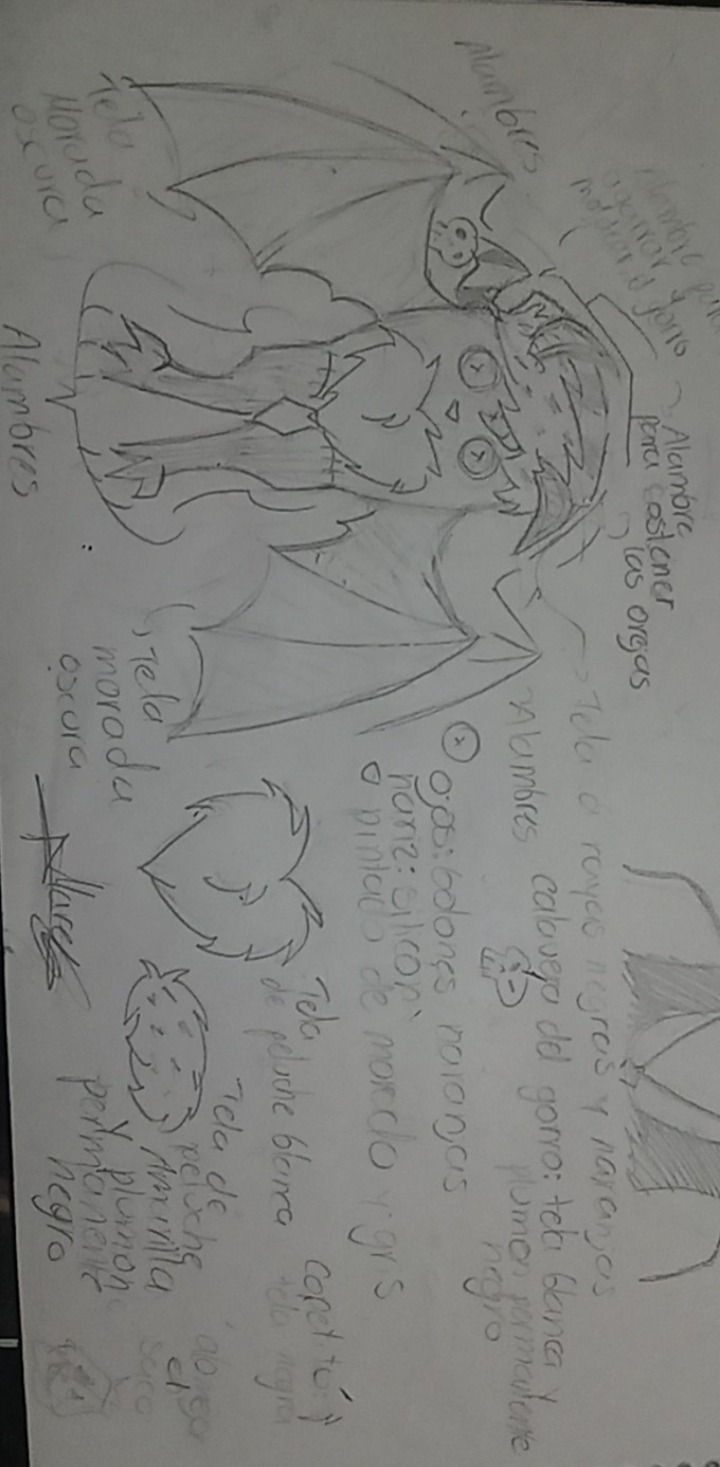 Alambres
Tela
Morada
oscura
Alambres
Alambre
para costener
las orejas
Tela a rayas negras y naranjas
Alambres
calavera del gorro: tela blanca y
plumon permanente
negro
ojos: botones naranjas
nariz: silicon
pintado de morado y gris
Tela
morada
oscura
Tela
de peluche blanca
Tela de
peluche
Amarilla
y plumon
permanente
negro
tela negra